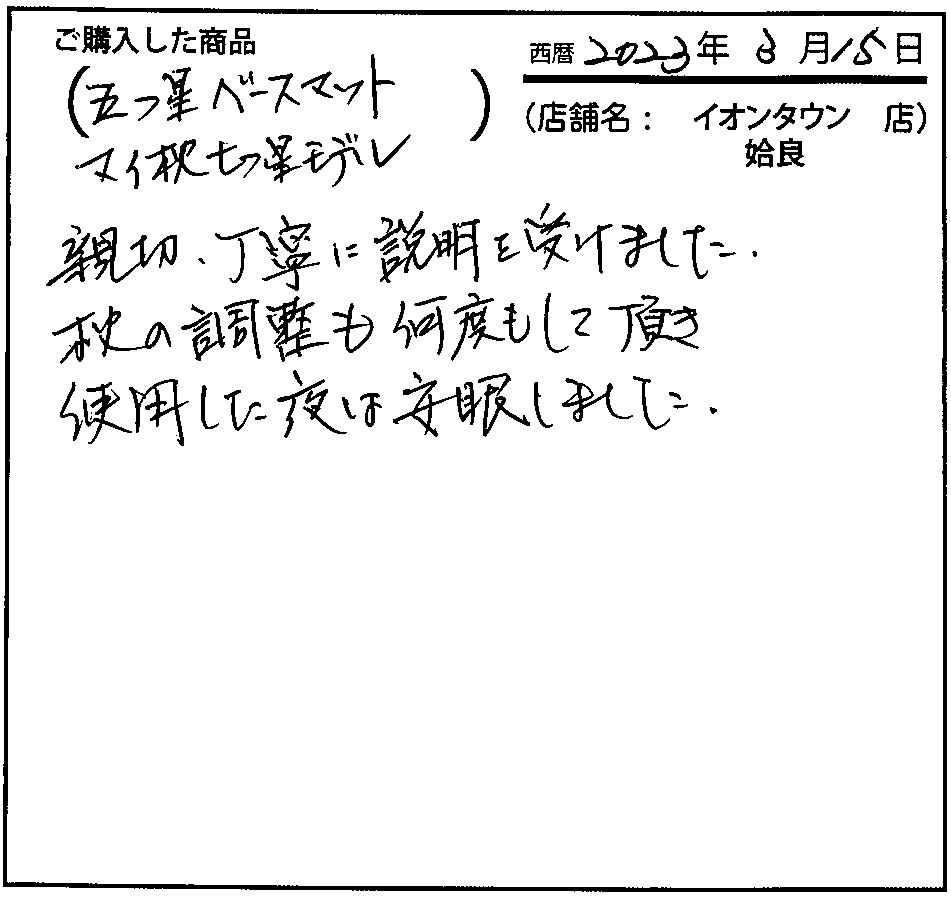 ご購入した商品
(五つ星ベースマット
マイ枕七つ星モデル)
西暦 2023年 3月15日
(店舗名： イオンタウン 店)
姶良
親切、丁寧に説明を受けました.
枕の調整も何度もして頂き
使用した夜は安眠しました.